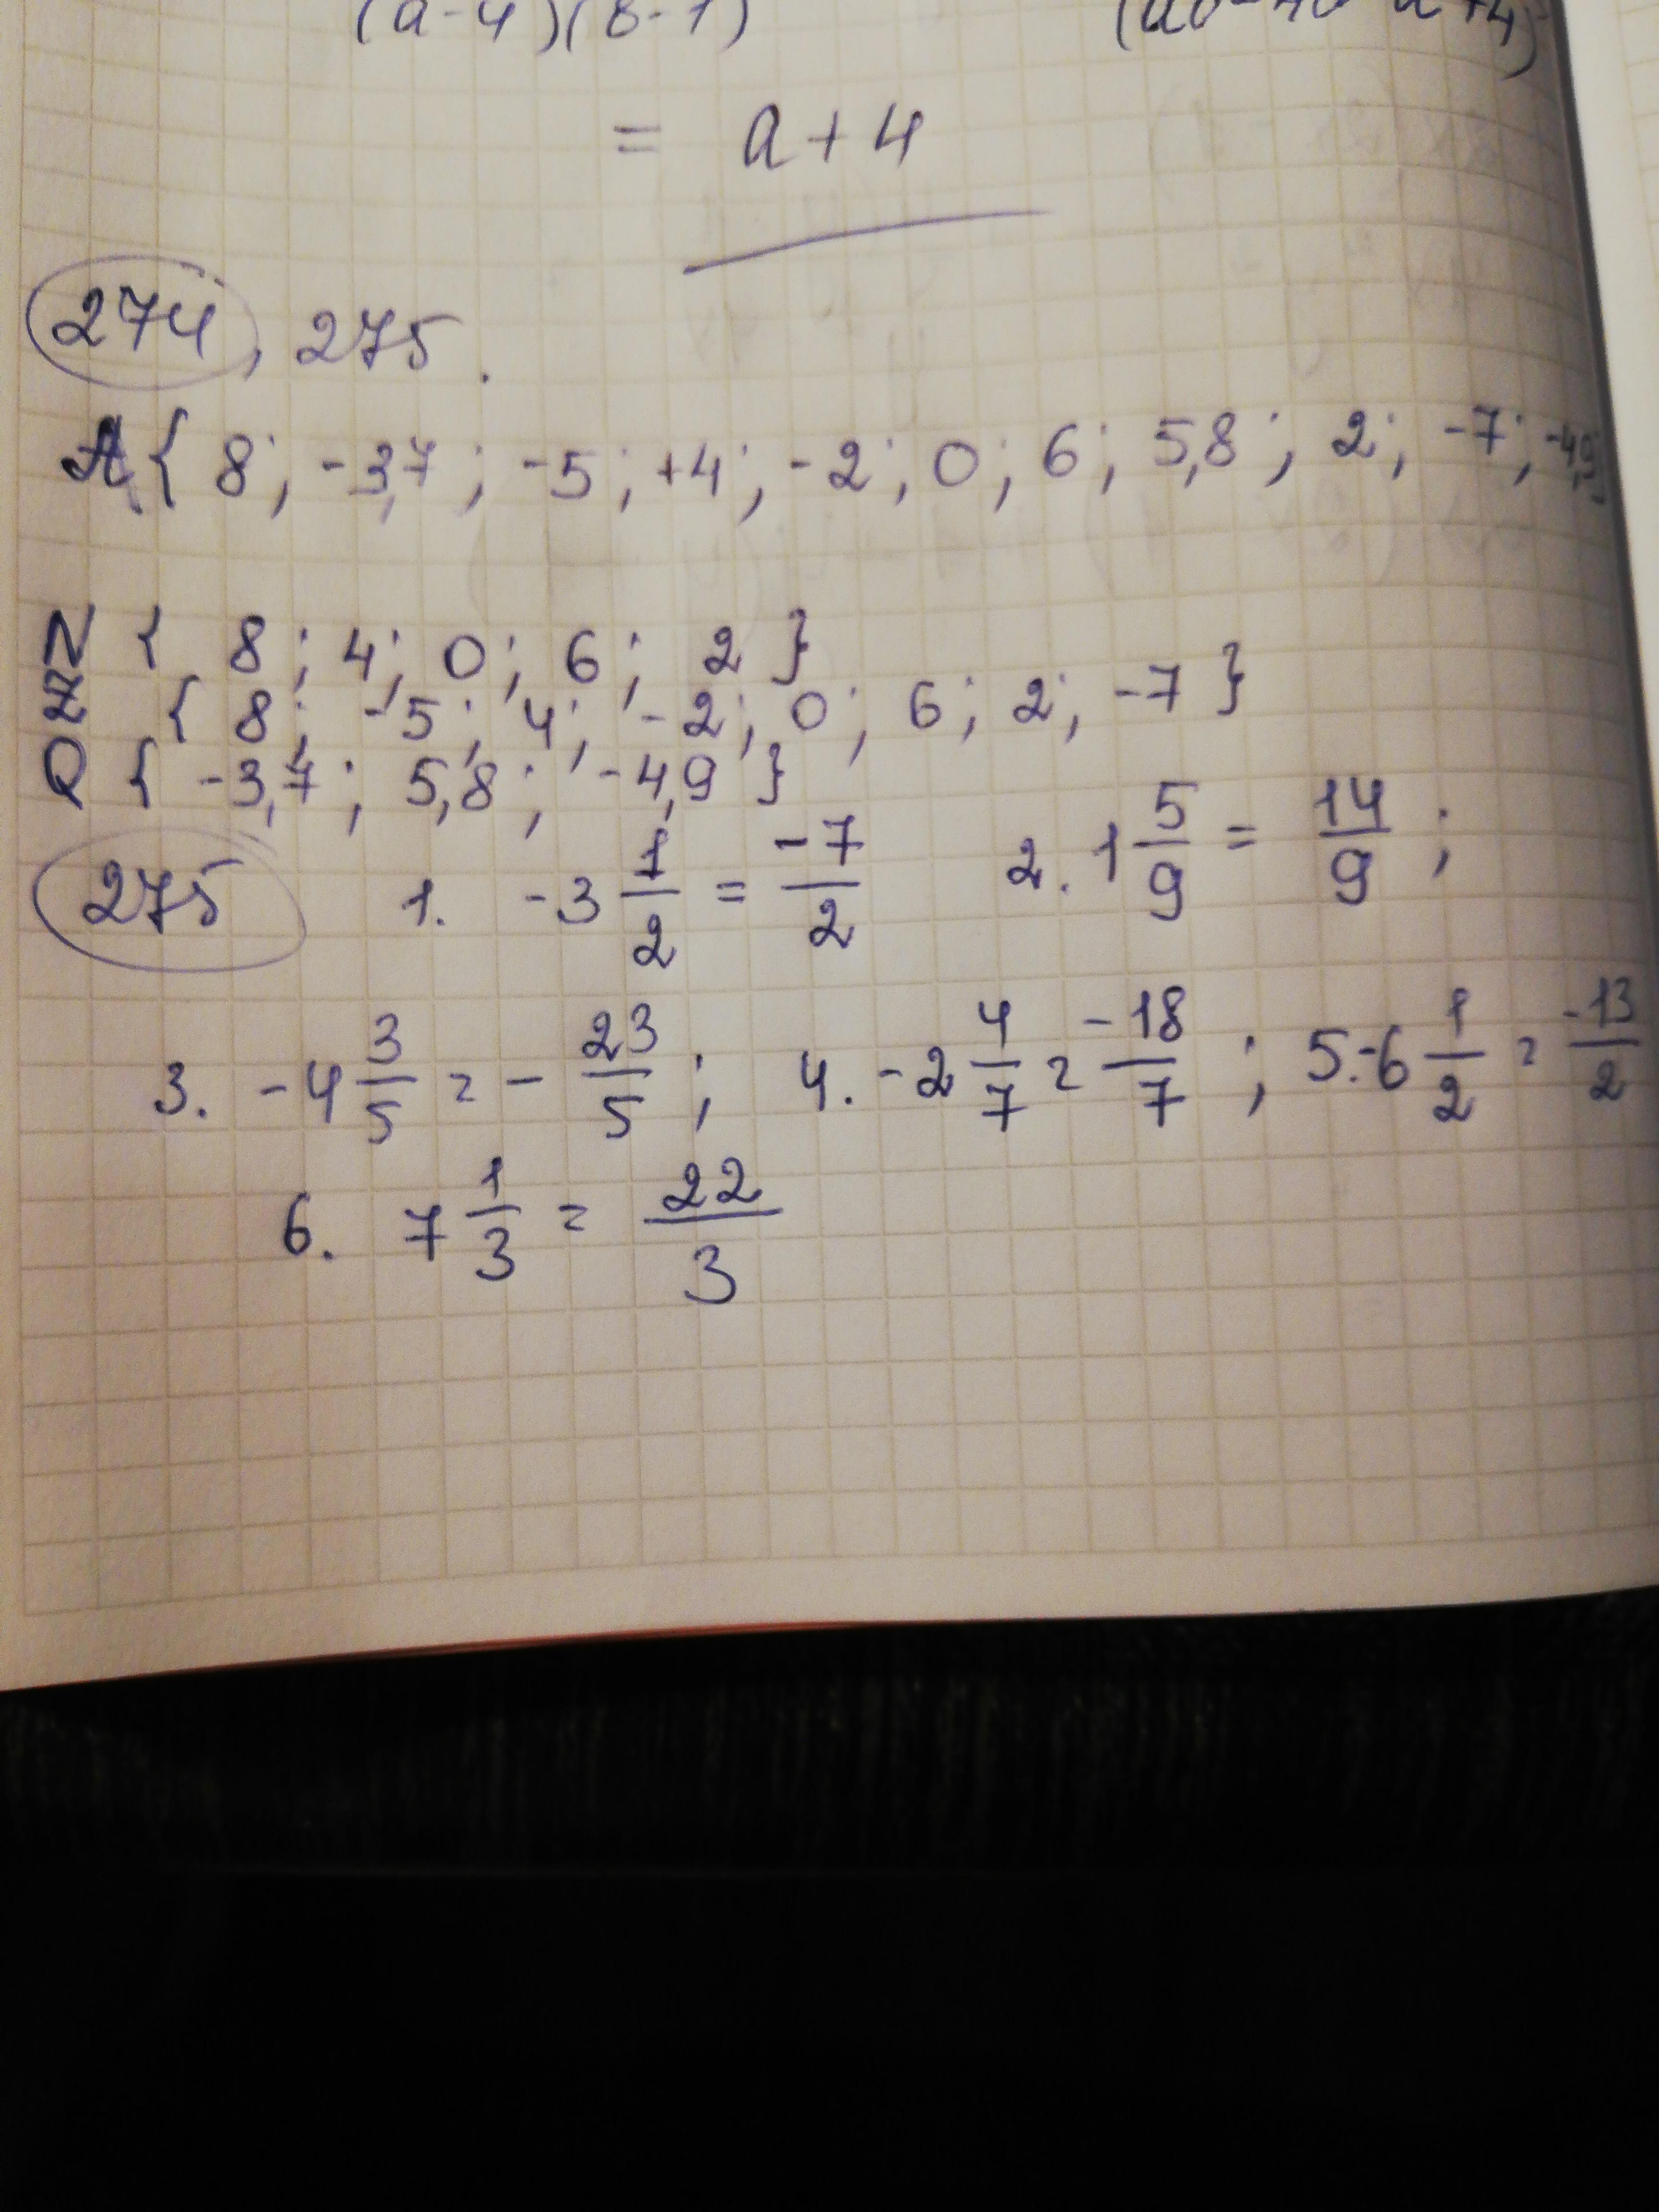 (a-4)(b-1)
= a+4
274, 275.
A { 8; -3,7; -5; +4; -2; 0; 6; 5,8; 2; -7; -4,9
N { 8; 4; 0; 6; 2 }
Z { 8; -5; 4; -2; 0; 6; 2; -7 }
Q { -3,7; 5,8; -4,9 }
275 1. -3 1/2 = -7/2 2. 1 5/9 = 14/9;
3. -4 3/5 = - 23/5; 4. -2 4/7 = -18/7; 5. -6 1/2 = -13/2
6. 7 1/3 = 22/3